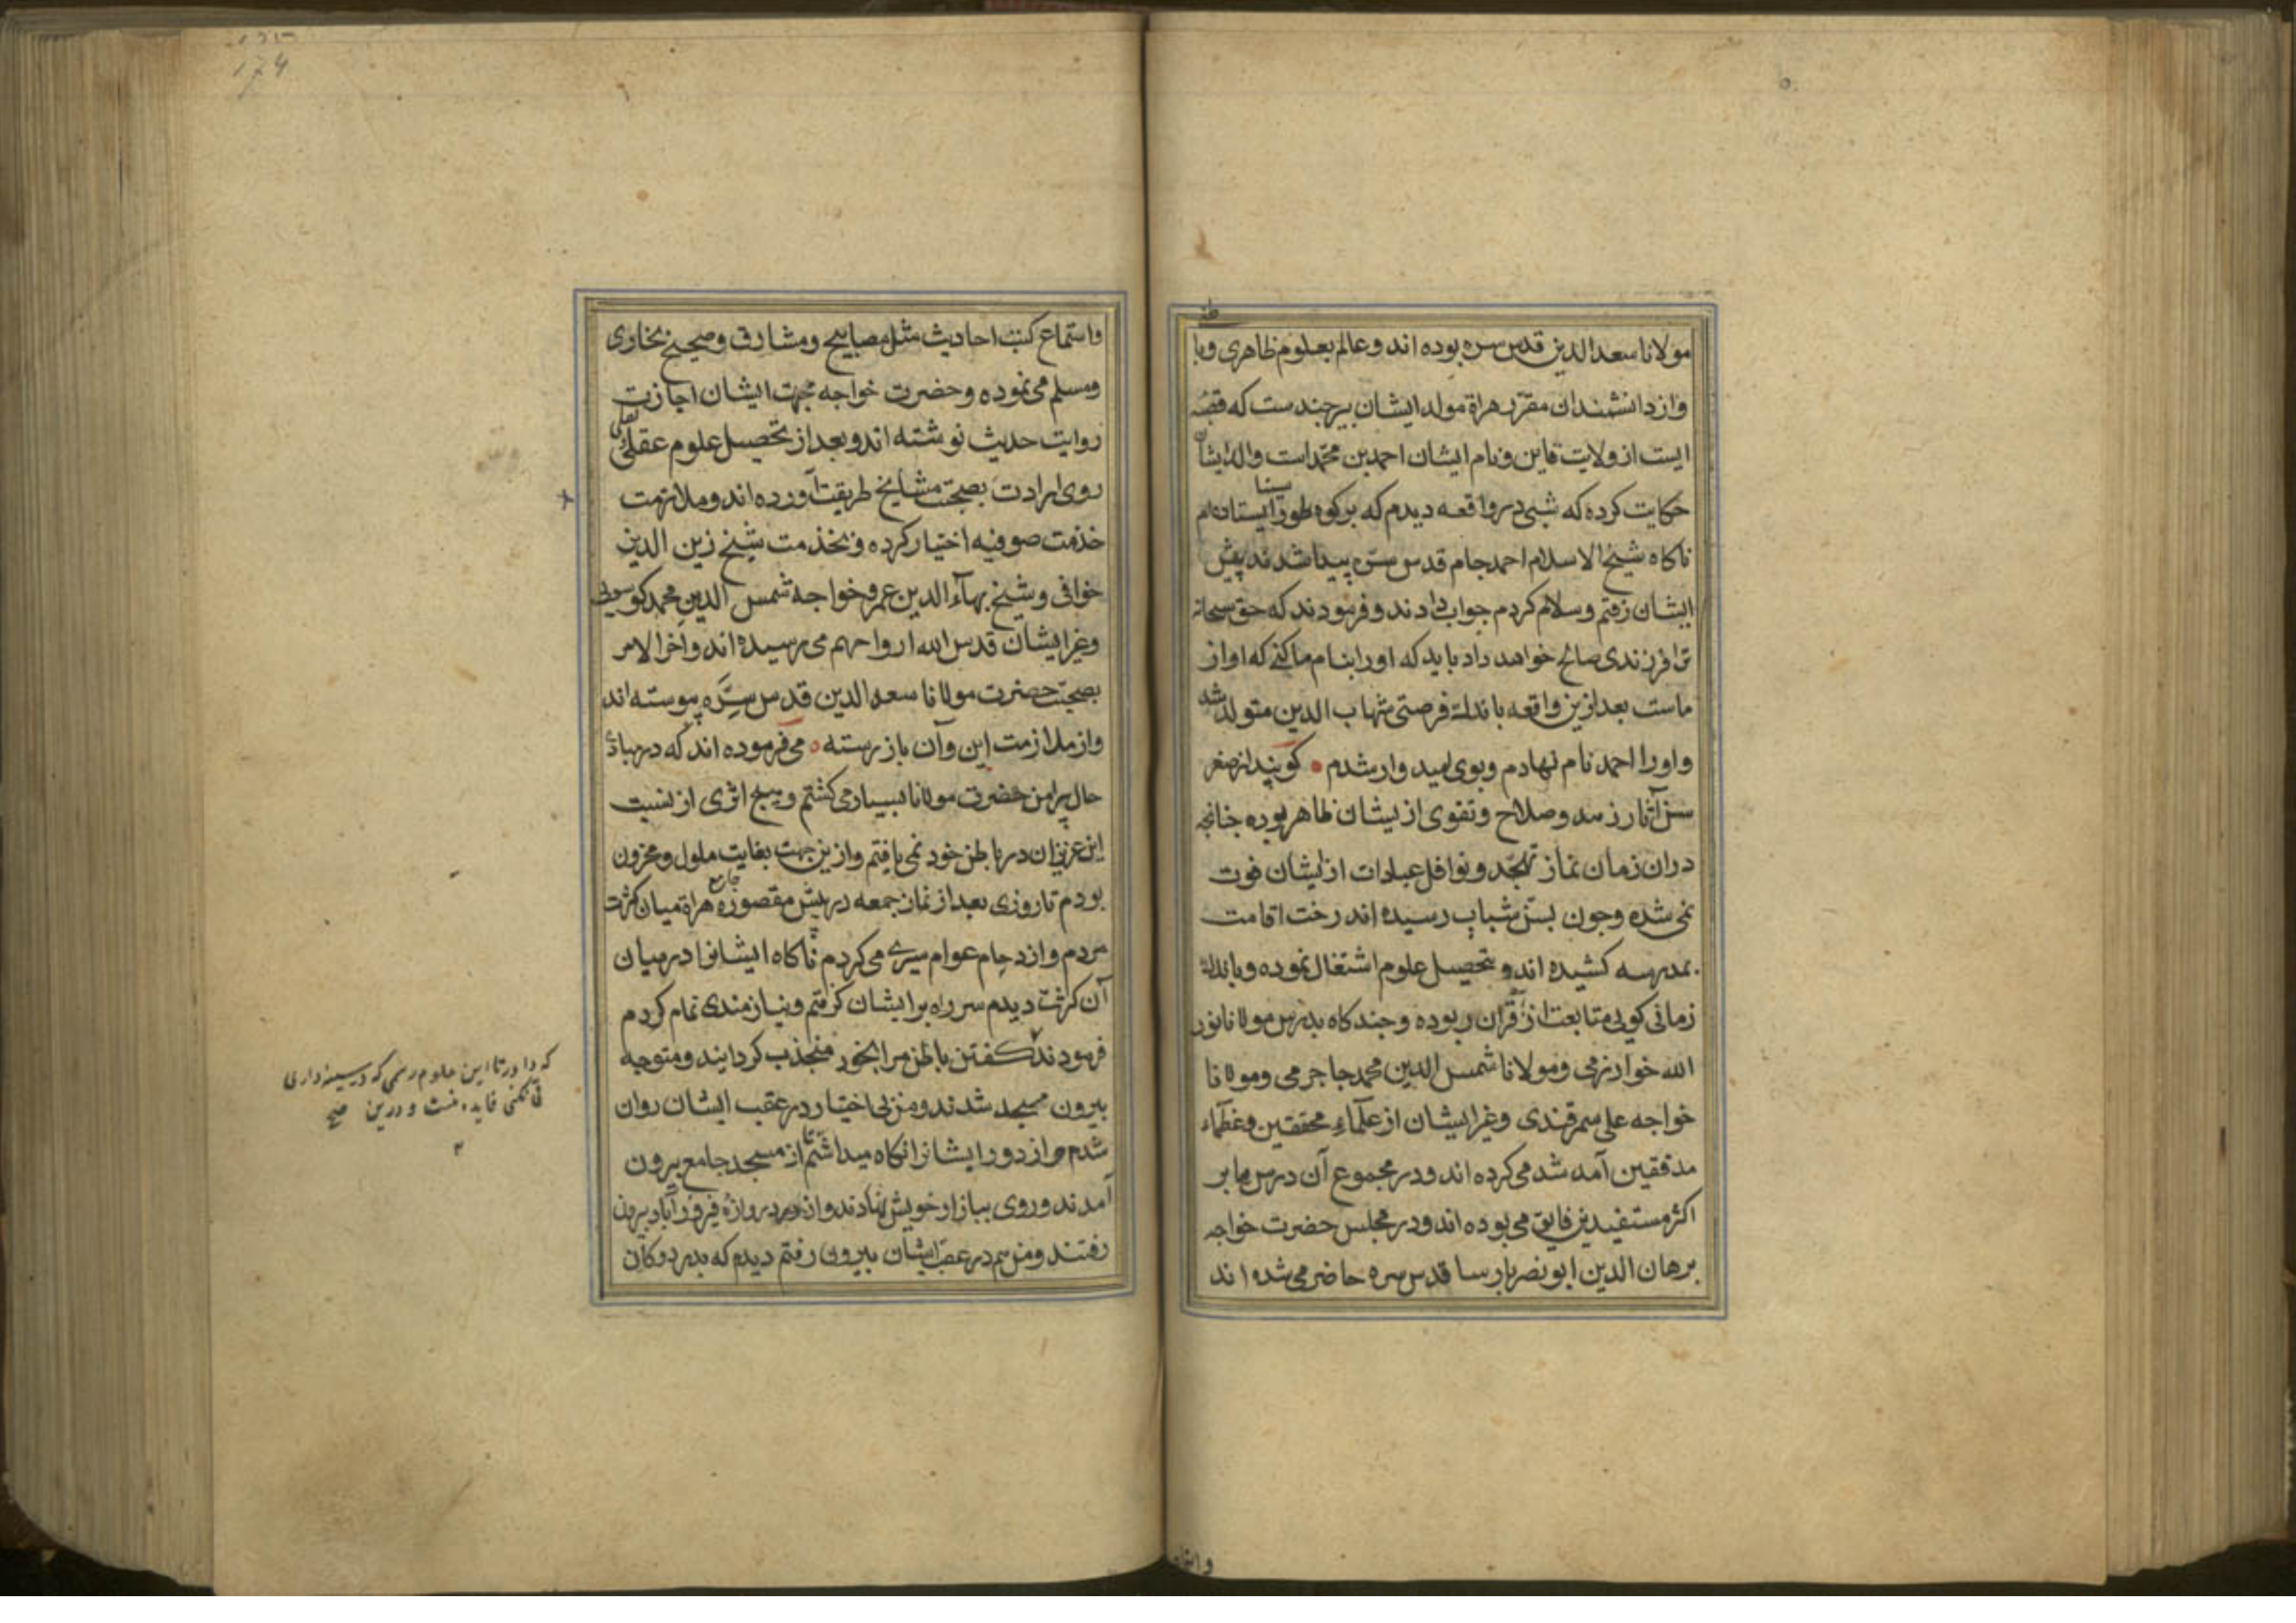 مولانا سعد الدین قدس سره بوده اند و عالم بعلوم ظاهری و با
طنی
و از دانشمندان مقرر هراة مولد ایشان بیرجندست که قصبه
ایست از ولایت قاین و نام ایشان احمد بن محمداست والد ایشان
حکایت کرده که شبی در واقعه دیدم که بر کوه طور سینا ایستاده ام
ناکاه شیخ الاسلام احمد جام قدس سره پیدا شدند پیش
ایشان رفتم و سلام کردم جواب دادند و فرمودند که حق سبحانه
ترا فرزندی صالح خواهد داد باید که او را بنام ما کنی که او از
ماست بعد ازین واقعه باندک فرصتی شهاب الدین متولد شد
و او را احمد نام نهادم و بوی امید وار شدم کویند از صغر
سن آثار زهد و صلاح و تقوی از یشان ظاهر بوده جنانجه
دران زمان نماز تهجد و نوافل عبادات از ایشان فوت
نمی شده و جون بسن شباب رسیده اند رخت اقامت
بمدرسه کشیده اند و بتحصیل علوم اشتغال نموده و باندک
زمانی کوی متابعت از قران ربوده و جند کاه بدرس مولانا نور
الله خوارزمی و مولانا شمس الدین محمد جاجرمی و مولانا
خواجه علی سمرقندی و غیر ایشان از علماء محققین و عظماء
مدققین آمد شد می کرده اند و در مجموع آن درس ها بر
اکثر مستفیدین فایق می بوده اند و در مجلس حضرت خواجه
برهان الدین ابو نصر پارسا قدس سره حاضر می شده اند
و استماع
۱۷۴
و استماع کتب احادیث مثل مصابیح و مشارق و صحیح بخاری
و مسلم می نموده و حضرت خواجه بجهت ایشان اجازت
روایت حدیث نوشته اند و بعد از تحصیل علوم عقلی و نقلی
روی ارادت بصحبت مشایخ طریقت آورده اند و ملازمت
خدمت صوفیه اختیار کرده و بخدمت شیخ زین الدین
خوافی و شیخ بهآء الدین عمر و خواجه شمس الدین محمد کوسویی
و غیر ایشان قدس الله ارواحهم می رسیده اند و آخر الامر
بصحبت حضرت مولانا سعد الدین قدس سره پیوسته اند
و از ملازمت این و آن باز رسته می فرموده اند که در مبادی
حال پیرامن حضرت مولانا بسیار می کشتم و هیج اثری از نسبت
این عزیزان در باطن خود نمی یافتم و ازین جهت بغایت ملول و محزون
بودم تا روزی بعد از نماز جمعه در پیش مقصوره جامع هراة میان کثرت
مردم و ازدحام عوام سیری می کردم ناکاه ایشانرا در میان
آن کثرت دیدم سر راه بر ایشان کرفتم و نیازمندی تمام کردم
فرمودند کفتن باطن مرا بخود منجذب کردایند و متوجه
بیرون مسجد شدند و من بی اختیار در عقب ایشان روان
شدم و از دور ایشانرا نکاه میداشتم تا از مسجد جامع بیرون
آمدند و روی ببازار خویش نهادند و از در دروازه فیروزآباد بیرون
رفتند و من هم در عقب ایشان بیرون رفتم دیدم که بدر دوکان
که دا ور تا این علوم رسمی که در سینه داری
قی نکنی فایده نیست و درین صح